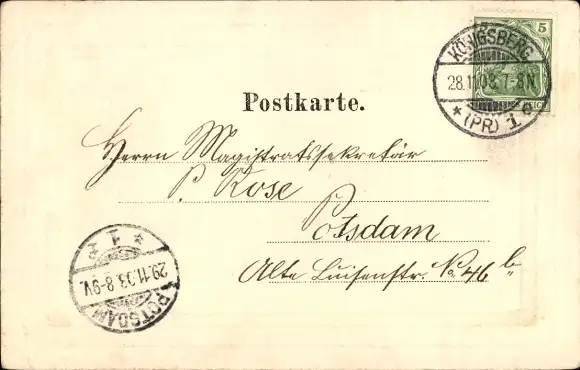 5
KÖNIGSBERG
28.11.03.7-8N
* (PR) 1 c
REICH
Postkarte.
Herrn Magistratssekretär
P. Rose
Potsdam
Alte Luisenstr. No. 46 b
* 1
29.11.03.8-9V.
POTSDAM